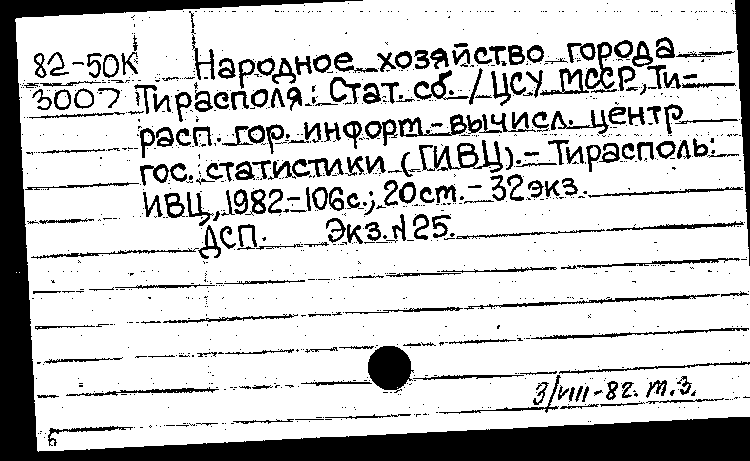 82-50К Народное хозяйство города
3007 Тирасполя: Стат. сб. / ЦСУ МССР, Ти-
расп. гор. информ.-вычисл. центр
гос. статистики (ГИВЦ).- Тирасполь:
ИВЦ, 1982.-106с.; 20см.- 32экз.
ДСП. Экз.N25.
3/VIII-82. т.з.
6